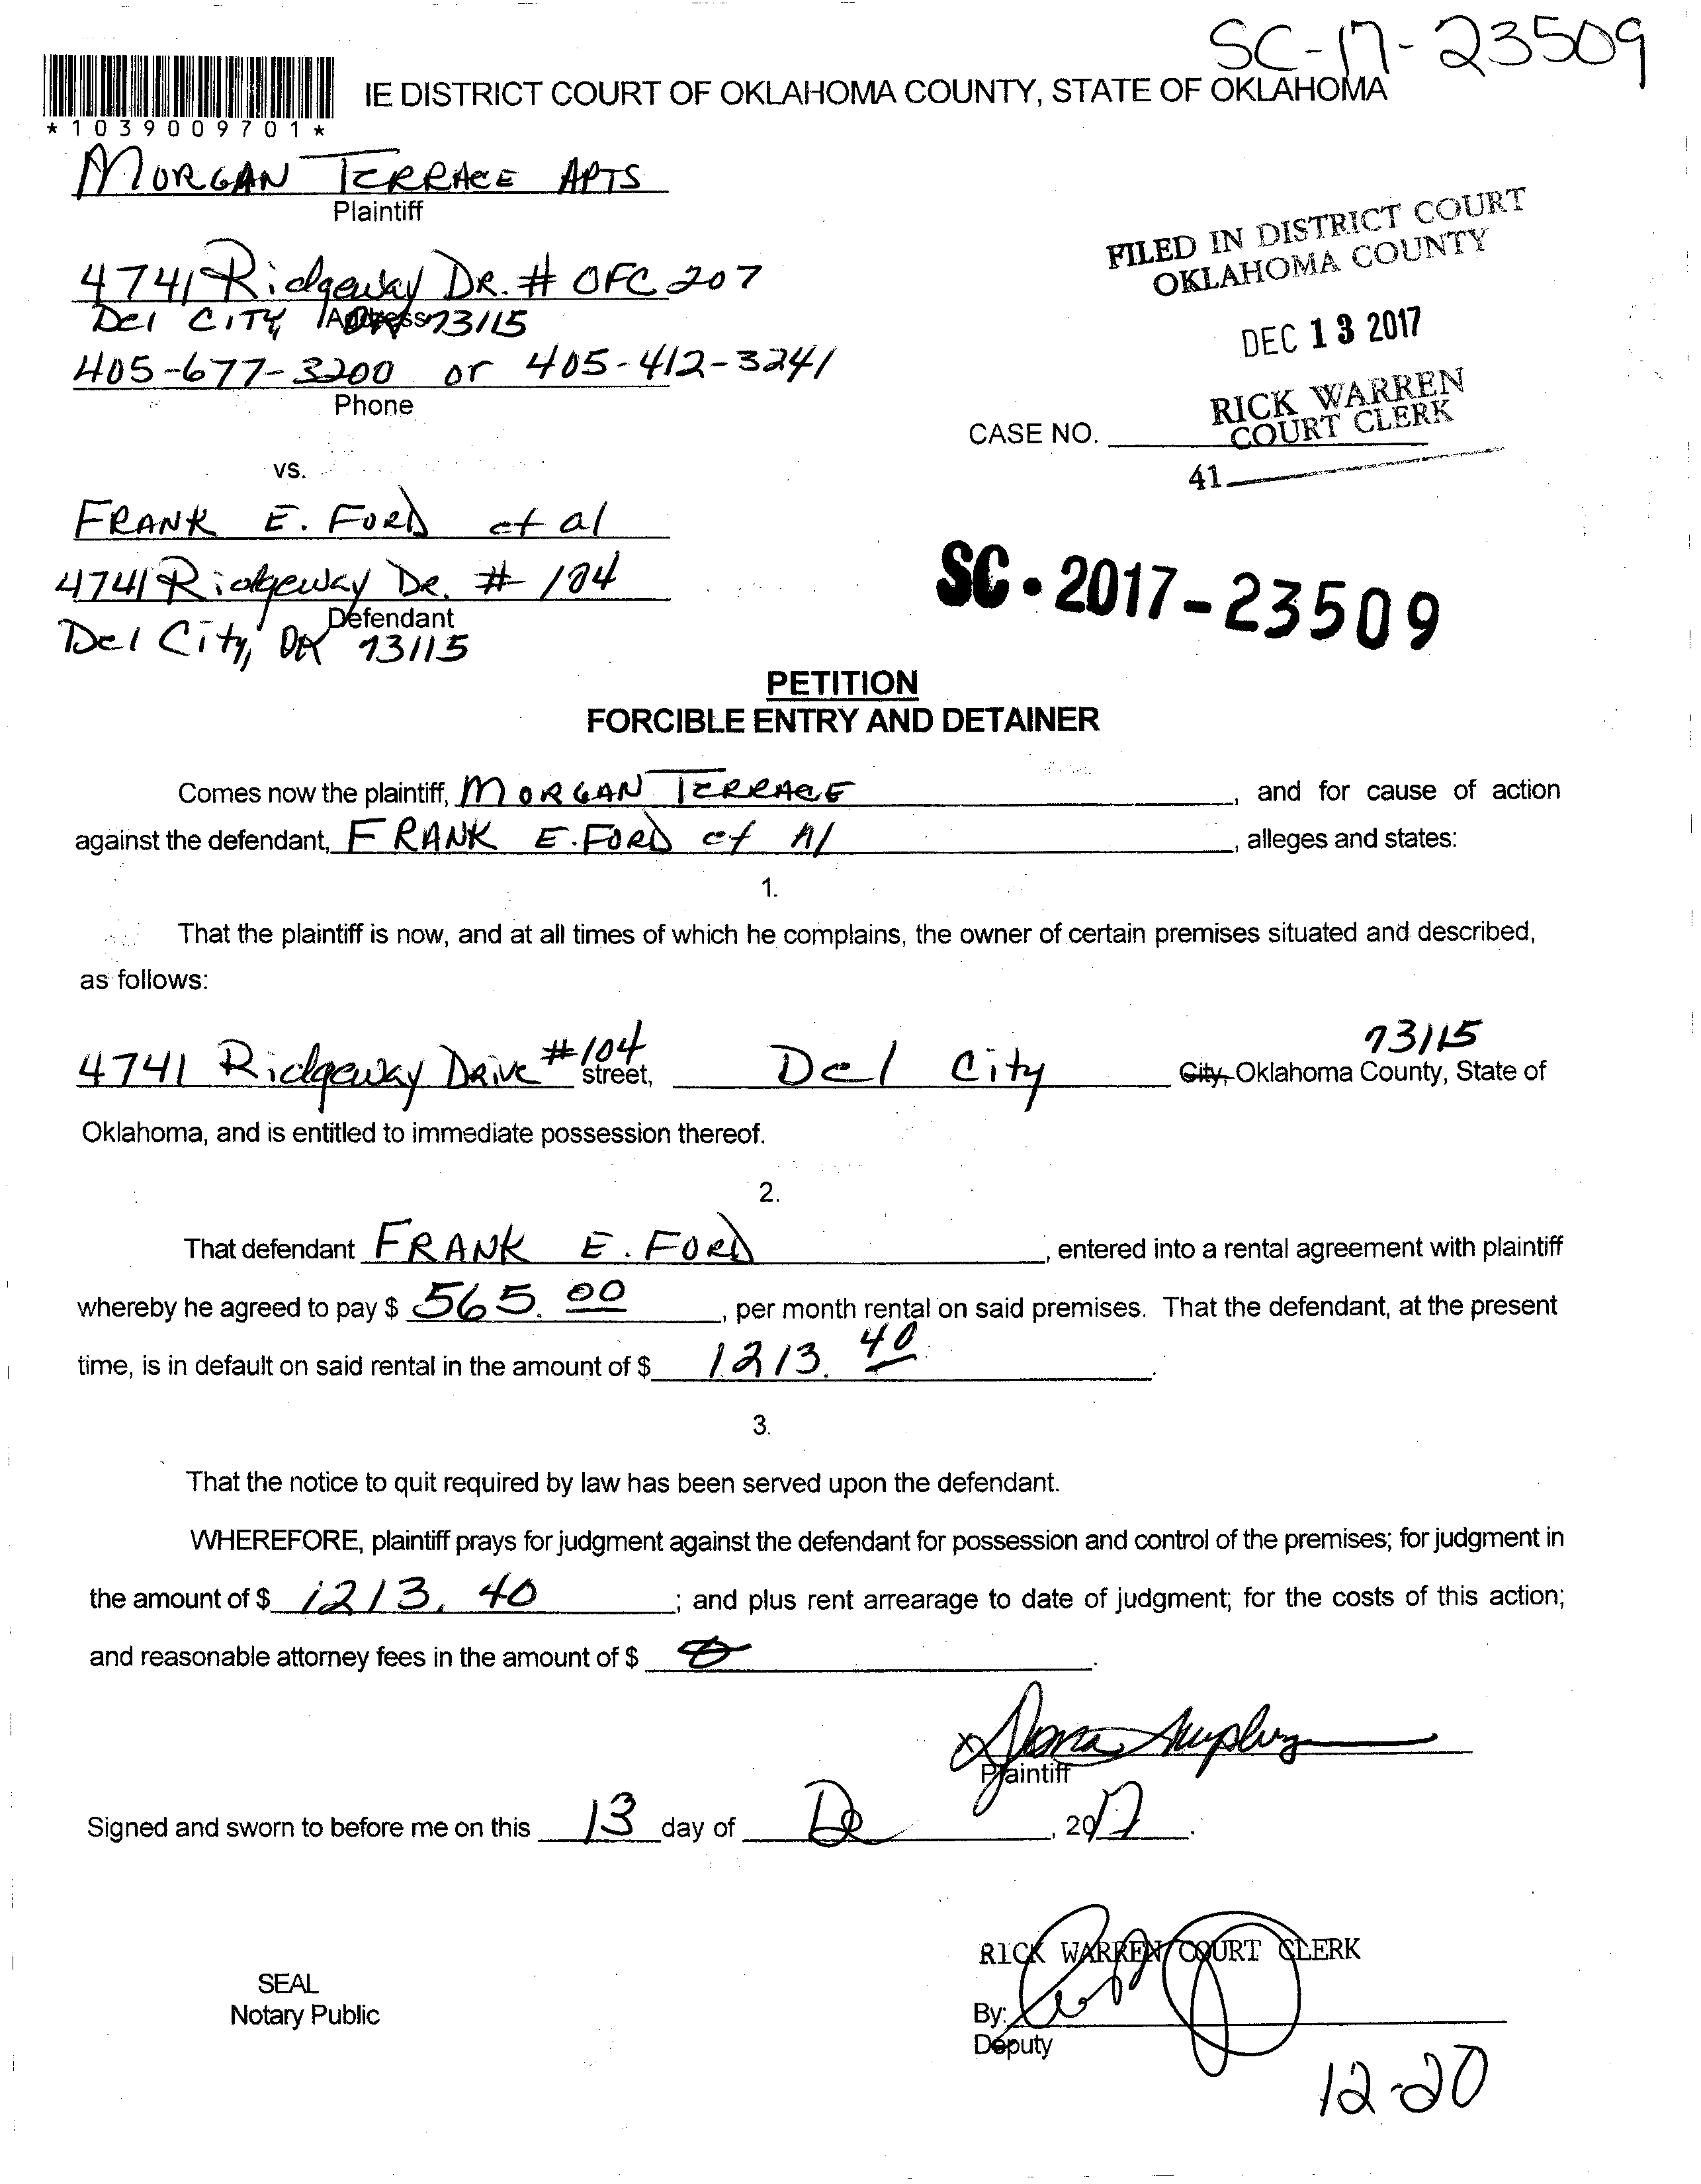 SC-17-23509
IE DISTRICT COURT OF OKLAHOMA COUNTY, STATE OF OKLAHOMA
*1039009701*
MORGAN TERRACE APTS
Plaintiff
4741 Ridgeway DR. # OFC 207
Del CITY, OK 73115
Address
405-677-3200 or 405-412-3241
Phone
FILED IN DISTRICT COURT
OKLAHOMA COUNTY
DEC 13 2017
RICK WARREN
COURT CLERK
CASE NO.
41
vs.
FRANK E. FORD et al
4741 Ridgeway DR. # 104
Defendant
Del City, OK 73115
SC-2017-23509
PETITION
FORCIBLE ENTRY AND DETAINER
Comes now the plaintiff, MORGAN TERRACE, and for cause of action
against the defendant, FRANK E. FORD et Al, alleges and states:
1.
That the plaintiff is now, and at all times of which he complains, the owner of certain premises situated and described,
as follows:
73115
4741 Ridgeway Drive #104 street, Del City City, Oklahoma County, State of
Oklahoma, and is entitled to immediate possession thereof.
2.
That defendant FRANK E. FORD, entered into a rental agreement with plaintiff
whereby he agreed to pay $ 565.00, per month rental on said premises. That the defendant, at the present
time, is in default on said rental in the amount of $ 1213.40.
3.
That the notice to quit required by law has been served upon the defendant.
WHEREFORE, plaintiff prays for judgment against the defendant for possession and control of the premises; for judgment in
the amount of $ 1213.40; and plus rent arrearage to date of judgment; for the costs of this action;
and reasonable attorney fees in the amount of $ 0.
x
Plaintiff
Signed and sworn to before me on this 13 day of De, 2017.
RICK WARREN COURT CLERK
SEAL
Notary Public
By:
Deputy
12-20